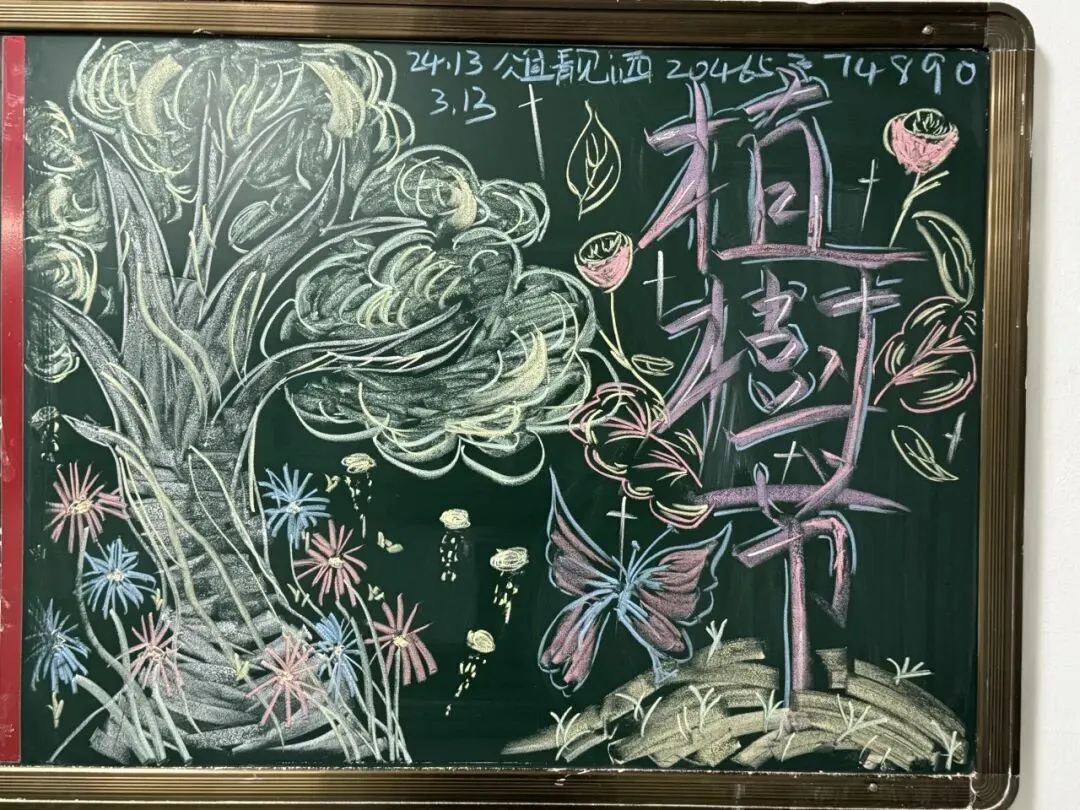 24.13 公直靓洒 20465 74890
3.13
植
树
节